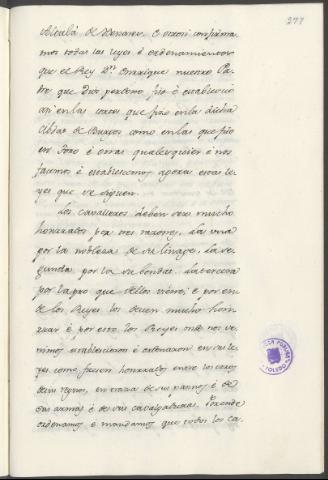 277
Alcalá de Henares. E otrosi confirma-
mos todas las leyes é ordenamientos
que el Rey Dn. Enrrique nuestro Pa-
dre, que Dios perdone fizo é estableció
asi en las cortes que fizo en la dicha
Cibdat de Burgos como en las que fizo
en Toro é otras qualesquier é nos
facemos é establescemos agora estas le-
yes que se siguen.
Los cavalleros deben ser mucho
honrrados por tres razones, La una
por la nobleza de su linage, La se-
gunda por la su bondat, La tercera
por la pro que dellos viene, e por en-
de los Reyes los deven mucho hon-
rrar é por esto los Reyes onde nos ve-
nimos establecieron é ordenaron en sus le-
yes como fuesen honrrados entre los otros
de sus regnos, en traer de sus pannos é de
sus armas é de sus cavalgaduras. Porende
ordenamos e mandamos que todos los ca-
TOLEDO